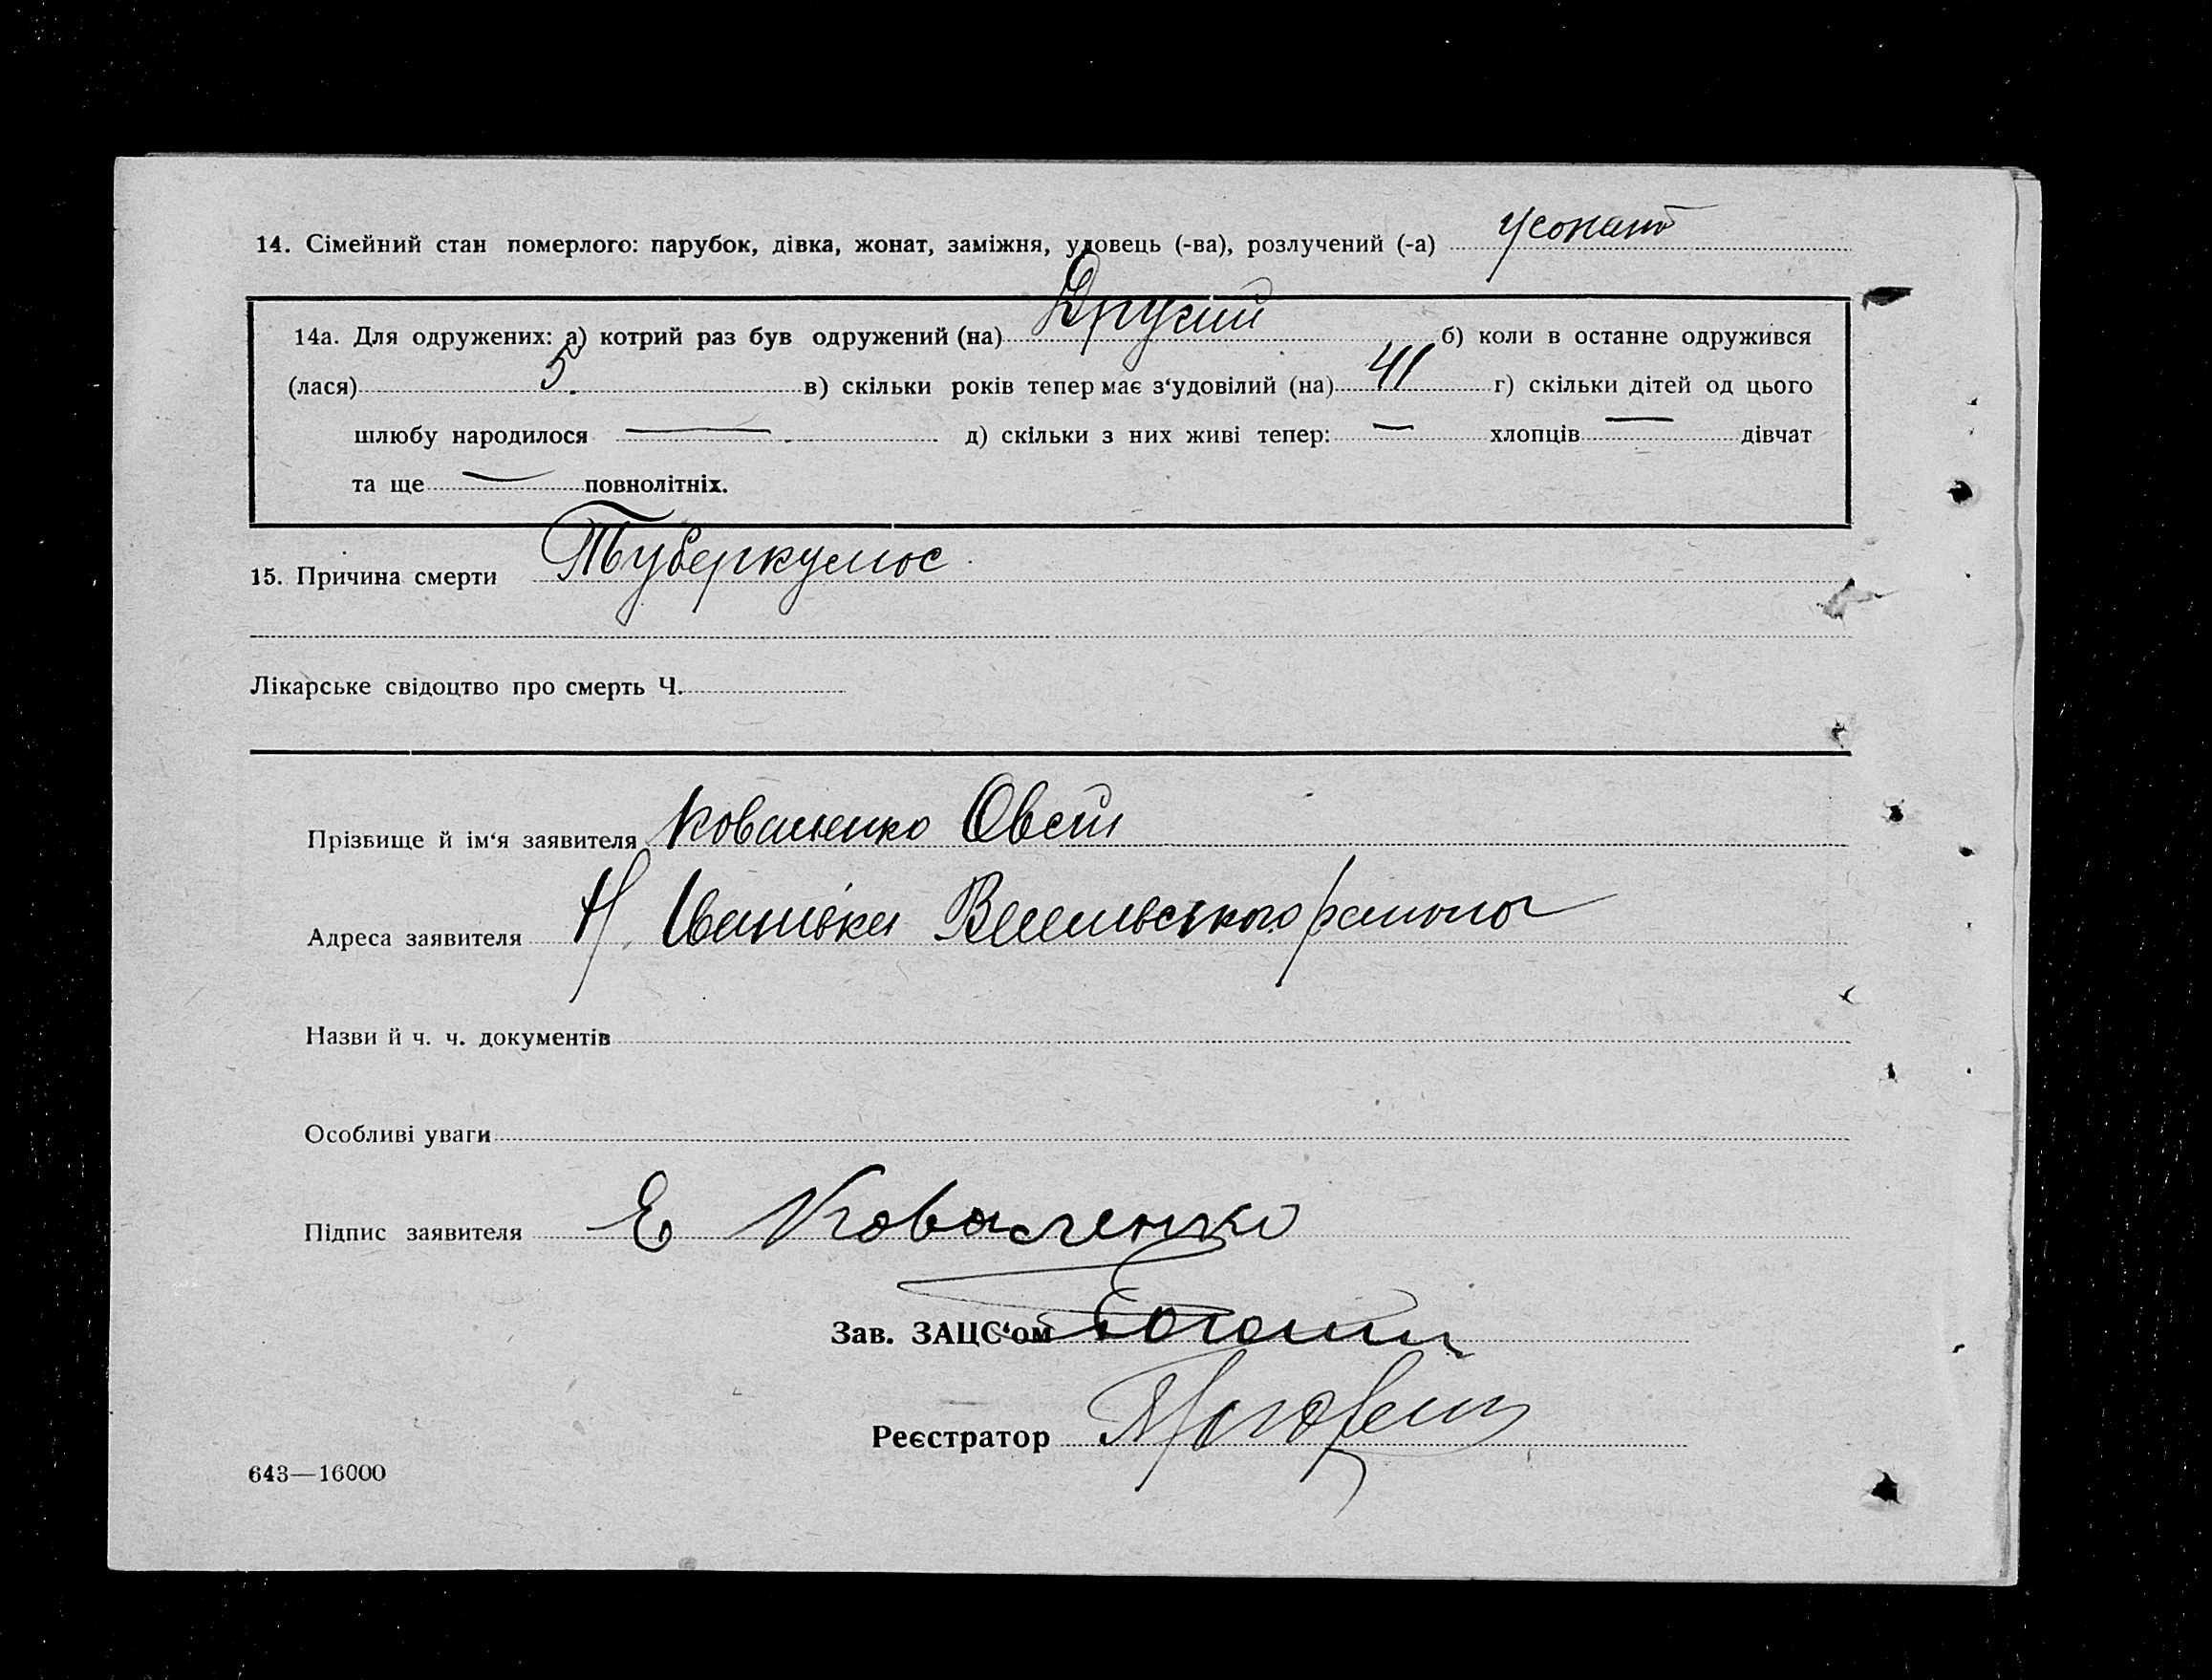 14. Сімейний стан померлого: парубок, дівка, жонат, заміжня, удовець (-ва), розлучений (-а) жонат
14а. Для одружених: а) котрий раз був одружений (на) Другий б) коли в останне одружився
(лася) 5. в) скільки років тепер має з‘удовілий (на) 41 г) скільки дітей од цього
шлюбу народилося — д) скільки з них живі тепер: — хлопців — дівчат
та ще — повнолітніх.
15. Причина смерти Туберкульос
Лікарське свідоцтво про смерть Ч.
Прізвище й ім‘я заявителя Коваленко Овсій
Адреса заявителя Н. Іванівка району
Назви й ч. ч. документів
Особливі уваги
Підпис заявителя Е Коваленко
Зав. ЗАЦС‘ом
Реєстратор
643—16000